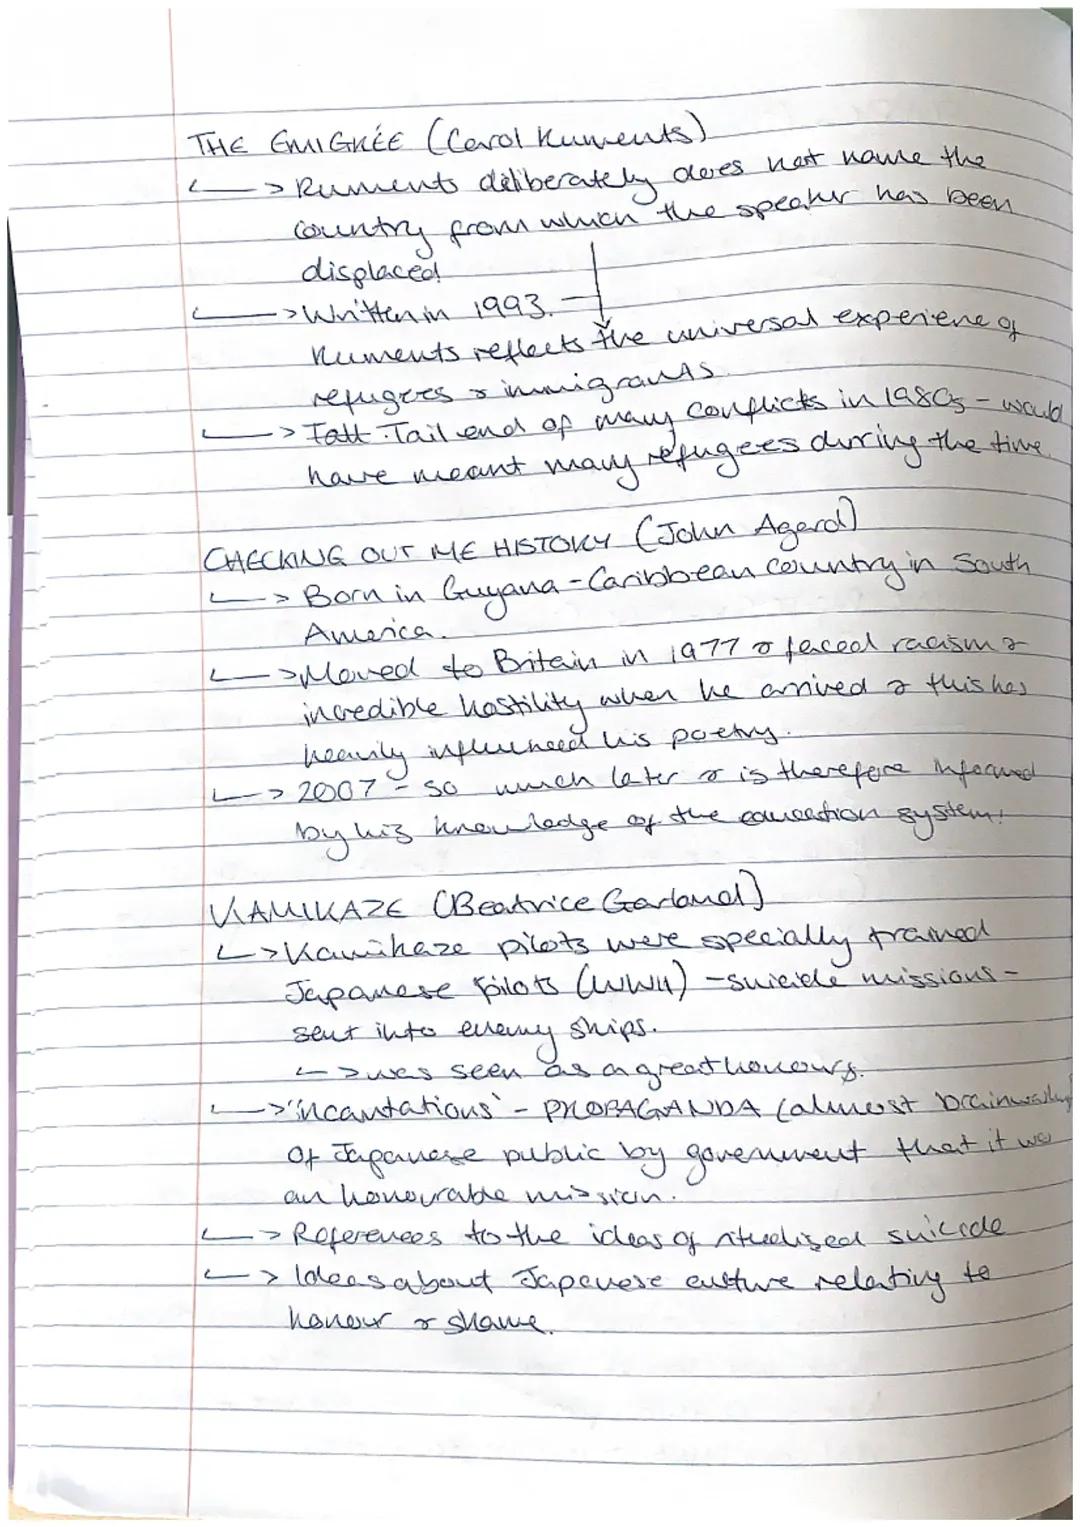 THE EMIGRÉE (Carol Ruments)
↳ Ruments deliberately does not name the
country from which the speaker has been
displaced
↳ Written in 1993.
Ruments reflects the universal experiene of
refugees & immigrants.
↳ Tail end of many conflicts in 1980s - would
have meant many refugees during the time.
CHECKING OUT ME HISTORY (John Agard)
↳ Born in Guyana - Caribbean country in South
America.
↳ Moved to Britain in 1977 & faced racism &
incredible hostility when he arrived & this has
heavily influenced his poetry.
↳ 2007 - so much later & is therefore informed
by his knowledge of the education system!
KAMIKAZE (Beatrice Garland)
↳ Kamikaze pilots were specially trained
Japanese pilots (WWII) - suicide missions -
sent into enemy ships.
↳ was seen as a great honour.
↳ 'incantations' - PROPAGANDA (almost brainwashing
of Japanese public by government that it was
an honourable mission.
↳ References to the ideas of ritualised suicide
↳ Ideas about Japanese culture relating to
honour & shame.